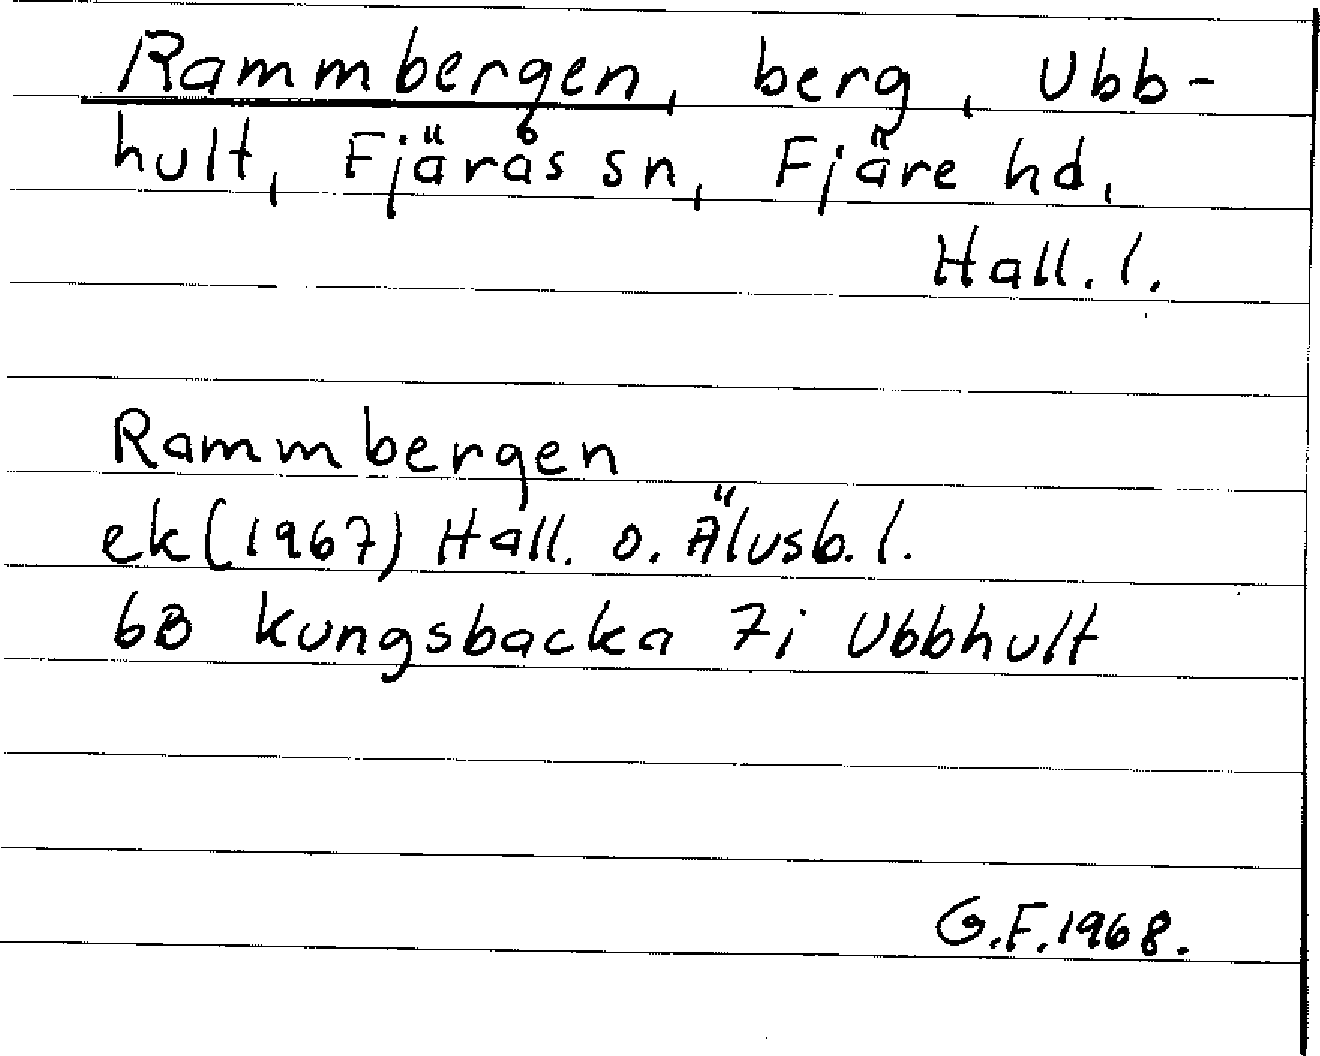 Rammbergen, berg, Ubb-
hult, Fjärås sn, Fjäre hd,
Hall. l.
Rammbergen
ek (1967) Hall. o. Älvsb. l.
6B Kungsbacka 7i Ubbhult
G.F. 1968.